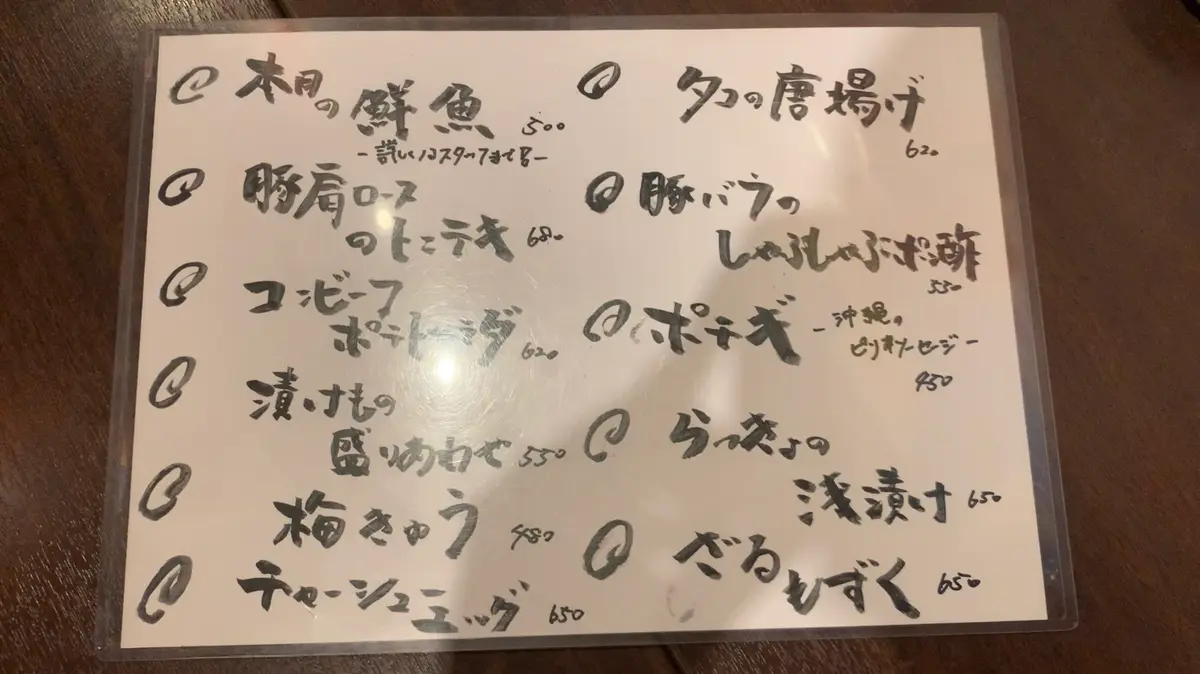 本日の鮮魚 500
-詳しくはスタッフまで-
豚肩ロース
のトンテキ 680
コンビーフ
ポテトサラダ 620
漬けもの
盛りあわせ 550
梅きゅう 480
チャーシュー
エッグ 650
タコの唐揚げ
620
豚バラの
しゃぶしゃぶポン酢
550
ポチギ -沖縄の
ピリ辛ソーセージ-
450
らっきょの
浅漬け 650
ざる
もずく 650